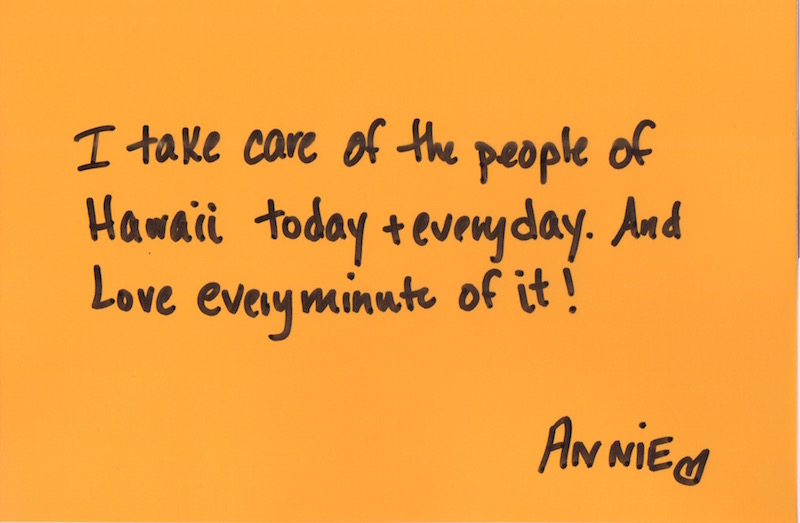 I take care of the people of
Hawaii today + everyday. And
Love every minute of it!
ANNIE ♡